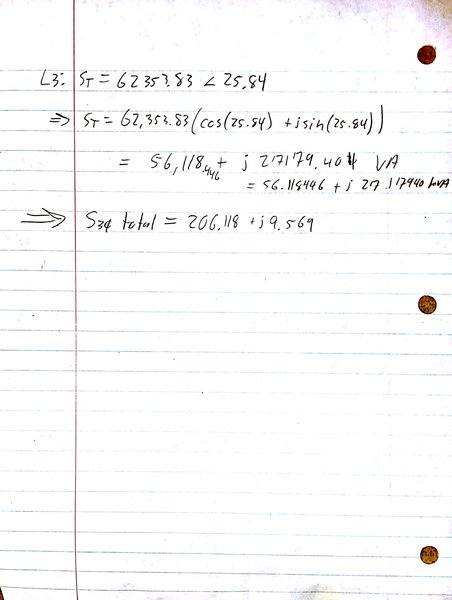 L3: ST = 62353.83 ∠ 25.84
⇒ ST = 62,353.83 (cos(25.84) + j sin(25.84))
= 56,118.446 + j 27179.404 VA
= 56.118446 + j 27.17940 kVA
⇒ S3φ total = 206.118 + j9.569